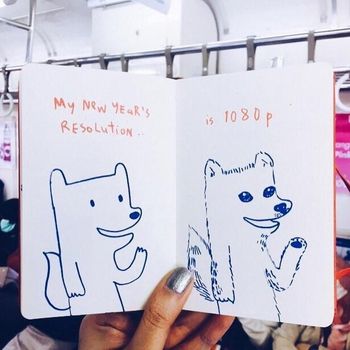 My NEW YEAR'S
RESOLUTION..
is 1080p